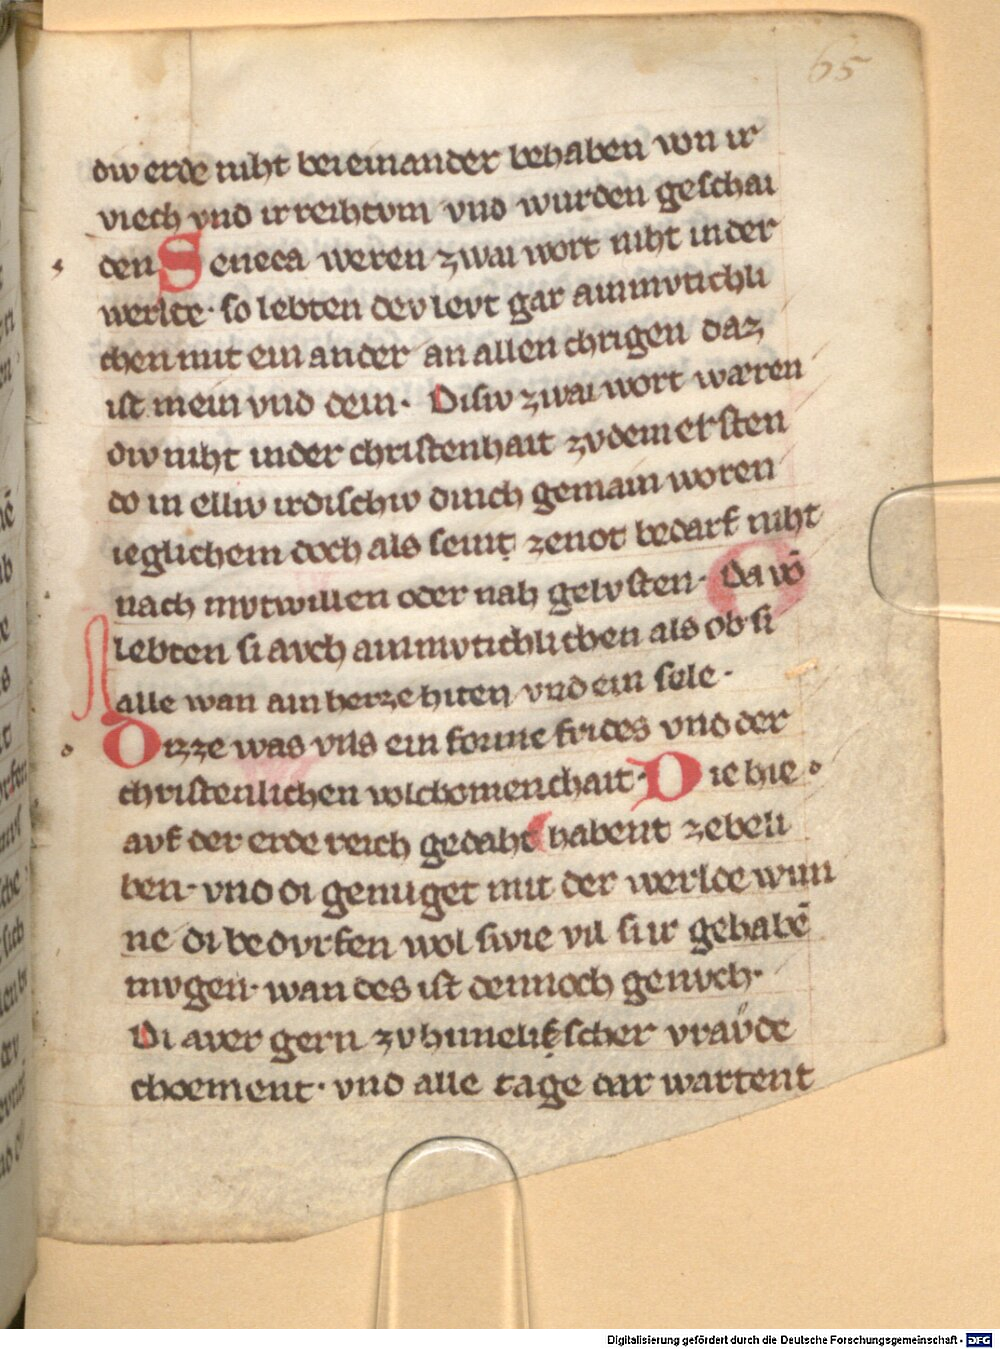 65
diw erde niht bei einander behaben von ir
viech vnd ir reihtvm vnd wurden geschai
den Seneca weren zwai wort niht in der
werlde· so lebten dev levt gar ainmvtichli
chen mit ein ander an allen chrigen daz
ist mein vnd dein· Disiv zwai wort wæren
div niht in der christenhait zv dem ersten
do in elliv irdischiv dinch gemain woren
ieglichem doch als seiner zenot bedarf niht
nach mvtwillen oder nah gelvsten· Da vō
lebten si avch ainmvtichlichen als ob si
alle wan ain herze hiten vnd ein sele·
Dizze was vns ein forme frides vnd der
christenlichen volchomenchait· Die hie
avf der erde reich gedaht habent ze beli
ben· vnd di genuget mit der werlde wun
ne di bedvrfen wol swie vil si ir gehabē
mvgen· wan des ist dennoch genvch·
Di aver gern zv himelischer vravde
choement· vnd alle tage dar wartent
Digitalisierung gefördert durch die Deutsche Forschungsgemeinschaft - DFG